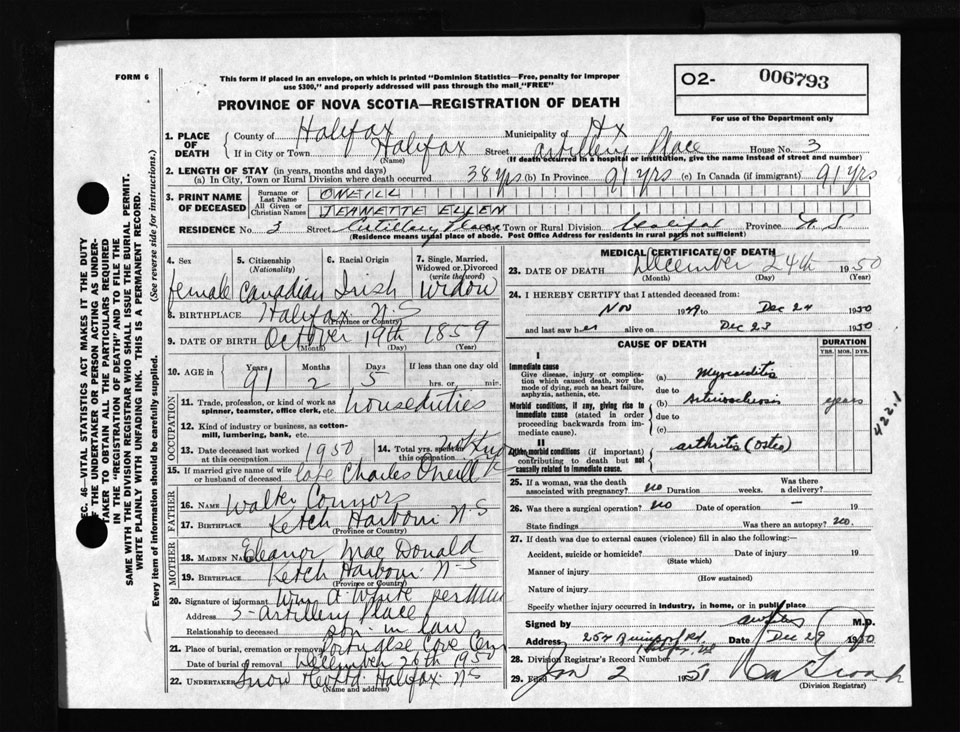 FORM 6
This form if placed in an envelope, on which is printed "Dominion Statistics—Free, penalty for improper
use $300," and properly addressed will pass through the mail "FREE"
PROVINCE OF NOVA SCOTIA—REGISTRATION OF DEATH
O2- 006793
For use of the Department only
SAME WITH THE DIVISION REGISTRAR WHO SHALL ISSUE THE BURIAL PERMIT.
WRITE PLAINLY WITH UNFADING INK. THIS IS A PERMANENT RECORD.
Every item of information should be carefully supplied. (See reverse side for instructions.)
SEC. 46—VITAL STATISTICS ACT MAKES IT THE DUTY
OF THE UNDERTAKER OR PERSON ACTING AS UNDER-
TAKER TO OBTAIN ALL THE PARTICULARS REQUIRED
IN THE "REGISTRATION OF DEATH" AND TO FILE THE
1. PLACE OF DEATH
County of Halifax Municipality of Hx
If in City or Town Halifax Street Artillery Place House No. 3
(Name) (If death occurred in a hospital or institution, give the name instead of street and number)
2. LENGTH OF STAY (in years, months and days)
(a) In City, Town or Rural Division where death occurred 38 yrs (b) In Province 91 yrs (c) In Canada (if immigrant) 91 yrs
3. PRINT NAME OF DECEASED
Surname or Last Name ONEILL
All Given or Christian Names JEANETTE ELLEN
RESIDENCE No. 3 Street Artillery Place Town or Rural Division Halifax Province N.S.
(Residence means usual place of abode. Post Office Address for residents in rural parts not sufficient)
4. Sex 5. Citizenship (Nationality) 6. Racial Origin 7. Single, Married, Widowed or Divorced (write the word)
female Canadian Irish Widow
8. BIRTHPLACE Halifax N-S
(Province or Country)
9. DATE OF BIRTH October 19th 1859
(Month) (Day) (Year)
10. AGE in Years 91 Months 2 Days 5 If less than one day old
hrs. or min.
OCCUPATION
11. Trade, profession, or kind of work as
spinner, teamster, office clerk, etc. houseduties
12. Kind of industry or business, as cotton-
mill, lumbering, bank, etc.
13. Date deceased last worked at this occupation 1950 14. Total yrs. spent in this occupation
15. If married give name of wife
or husband of deceased late Charles Oneill
FATHER
16. NAME Walter Connors
17. BIRTHPLACE Ketch Harbour N-S
(Province or Country)
MOTHER
18. MAIDEN NAME Eleanor MacDonald
19. BIRTHPLACE Ketch Harbour N-S
(Province or Country)
20. Signature of informant Wm A White per
Address 3-Artillery Place
Relationship to deceased son-in law
21. Place of burial, cremation or removal Portugese Cove Cem
Date of burial or removal December 26th 1950
22. UNDERTAKER Snow & Co Ltd Halifax N-S
(Name and address)
MEDICAL CERTIFICATE OF DEATH
23. DATE OF DEATH December 24th 1950
(Month) (Day) (Year)
24. I HEREBY CERTIFY that I attended deceased from:
Nov 1949 to Dec 24 1950
and last saw her alive on Dec 23 1950
CAUSE OF DEATH
DURATION
YRS. MOS. DYS.
I
Immediate cause
Give disease, injury or complica-
tion which caused death, NOT the
mode of dying, such as heart failure,
asphyxia, asthenia, etc.
(a) Myocarditis
due to
Morbid conditions, if any, giving rise to
immediate cause (stated in order
proceeding backwards from im-
mediate cause).
(b) Arteriosclerosis years
due to
(c)
422.1
II
Other morbid conditions (if important)
contributing to death but not
causally related to immediate cause.
arthritis (osteo)
25. If a woman, was the death
associated with pregnancy? no Duration weeks. Was there
a delivery?
26. Was there a surgical operation? no Date of operation — 19
State findings Was there an autopsy? no.
27. If death was due to external causes (violence) fill in also the following:—
Accident, suicide or homicide? Date of injury 19
(State which)
Manner of injury
(How sustained)
Nature of injury
Specify whether injury occurred in industry, in home, or in public place
Signed by M.D.
Address 254 Rd. Date Dec 29 1950
Halifax, NS
28. Division Registrar's Record Number
29. Filed Jan 2 1951
(Division Registrar)